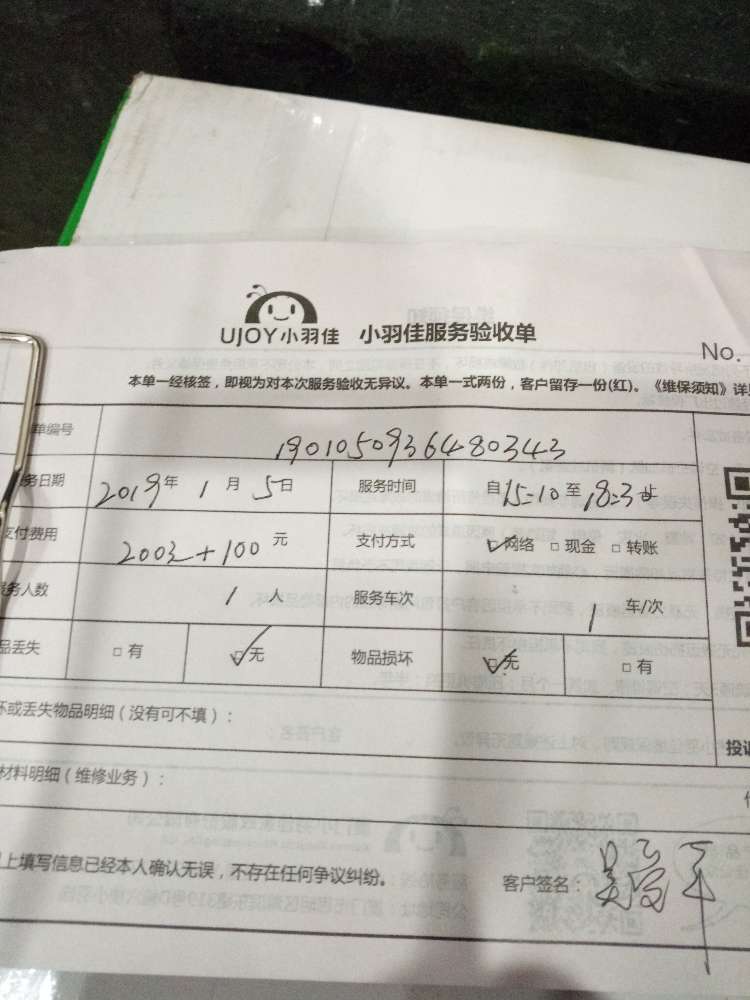 UJOY小羽佳 小羽佳服务验收单
No.
本单一经核签，即视为对本次服务验收无异议。本单一式两份，客户留存一份(红)。《维保须知》详见
单编号 1901050936480343
务日期 2019年 1月 5日 服务时间 自15:10至18:3止
支付费用 2002+100元 支付方式 ☑网络 □现金 □转账
务人数 1人 服务车次 1车/次
品丢失 □有 ☑无 物品损坏 ☑无 □有
坏或丢失物品明细（没有可不填）：
投诉
材料明细（维修业务）：
上填写信息已经本人确认无误，不存在任何争议纠纷。 客户签名：